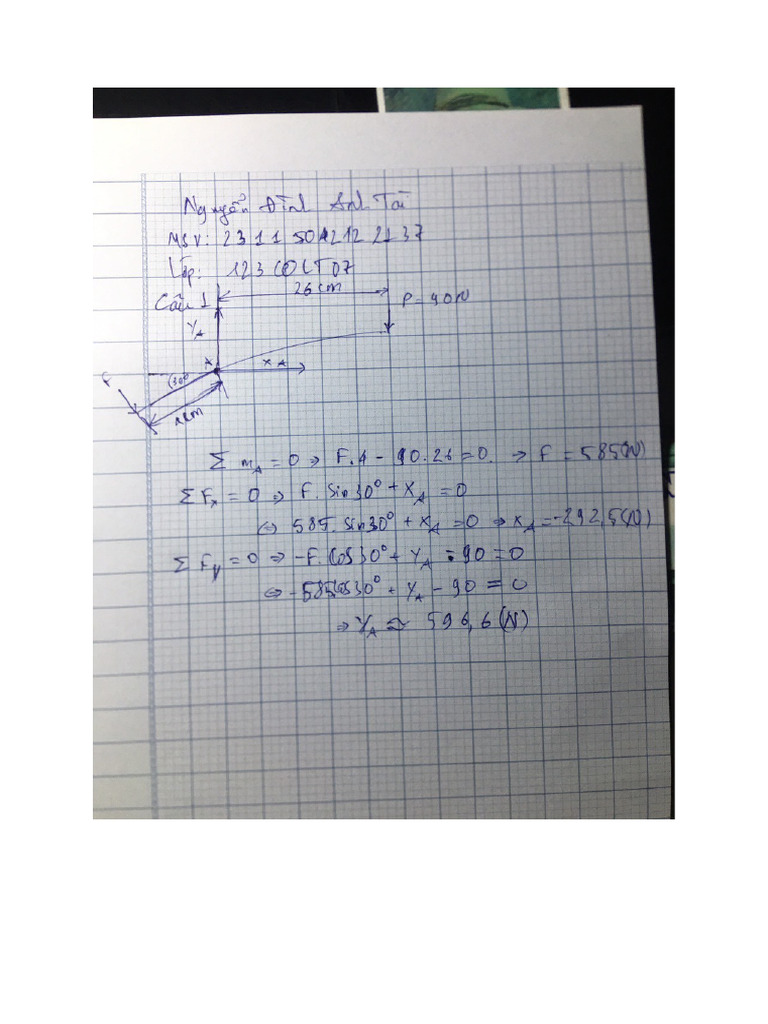 Nguyễn Đình Anh Tài
MSV: 23115042122137
Lớp: 123COLT07
Câu 1
26 cm
P = 90N
YA
A
XA
F
30°
∑ mA = 0 => F.4 - 90.26 = 0. => F = 585(N)
∑ Fx = 0 => F. Sin30° + XA = 0
<=> 585. sin30° + XA = 0 => XA = -292,5(N)
∑ Fy = 0 => -F. Cos30° + YA - 90 = 0
<=> -585cos30° + YA - 90 = 0
=> YA ≈ 596,6(N)